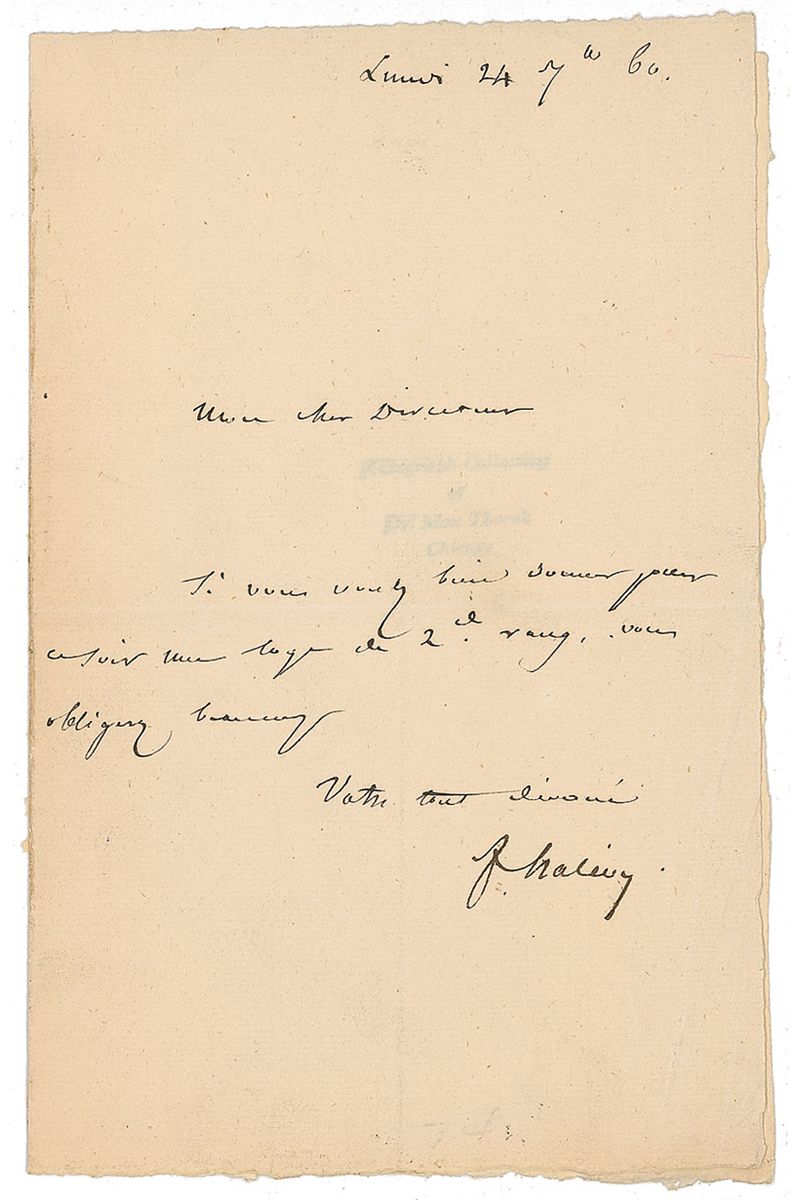 Lundi 24 7bre 60.
Mon cher Directeur
Autograph Collection
of
Dr. Max Thorek
Chicago
Si vous voulez bien donner pour
ce soir une loge de 2d. rang, vous
obligerez beaucoup
Votre tout dévoué
F. halévy.